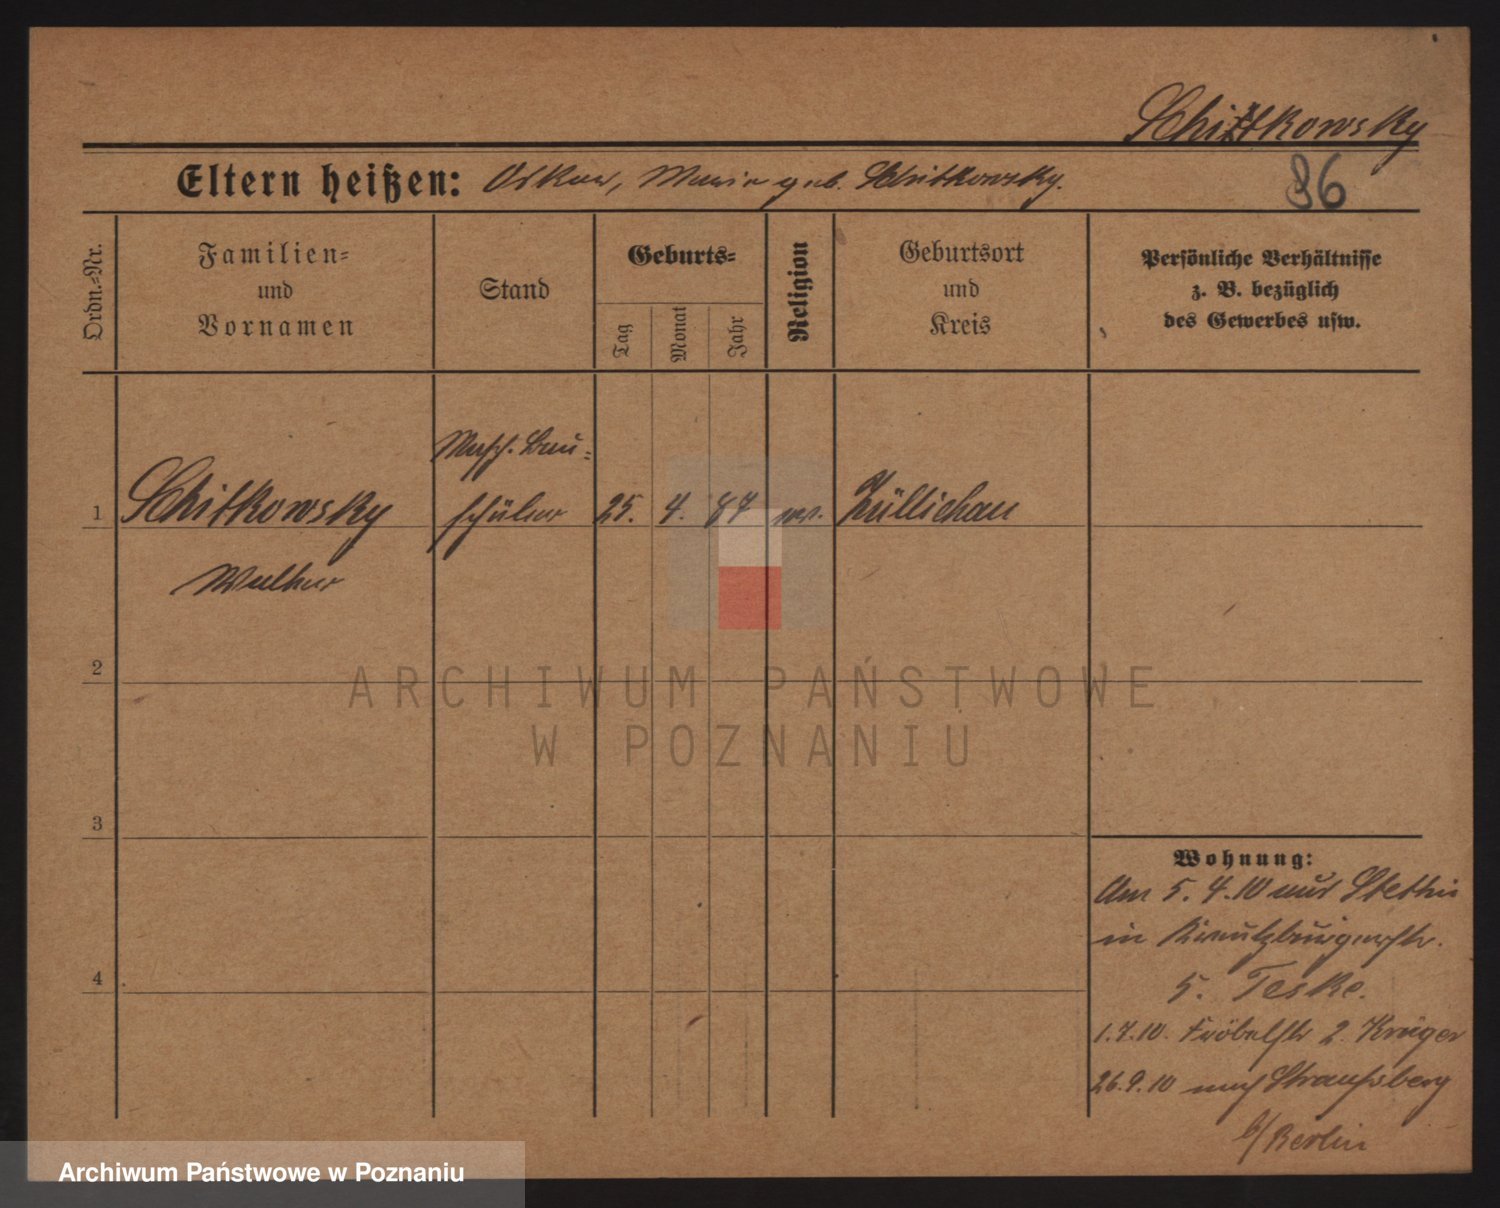 Schittkowsky
Eltern heißen: Oskar, Marie geb. Schitkowsky.
96
Ordn.-Nr.
Familien-
und
Vornamen
Stand
Geburts-
Tag
Monat
Jahr
Religion
Geburtsort
und
Kreis
Persönliche Verhältnisse
z. B. bezüglich
des Gewerbes usw.
Masch. Bau-
1 Schitkowsky schüler 25. 4. 87 ev. Züllichau
Walter
2
3
4
Wohnung:
Am 5. 4. 10 aus Stettin
in Kreutzburgerstr.
5. Teske.
1.7.10. Fröbelstr 2. Krüger
26.9.10 nach Straußberg
b/Berlin
ARCHIWUM PAŃSTWOWE
W POZNANIU
Archiwum Państwowe w Poznaniu